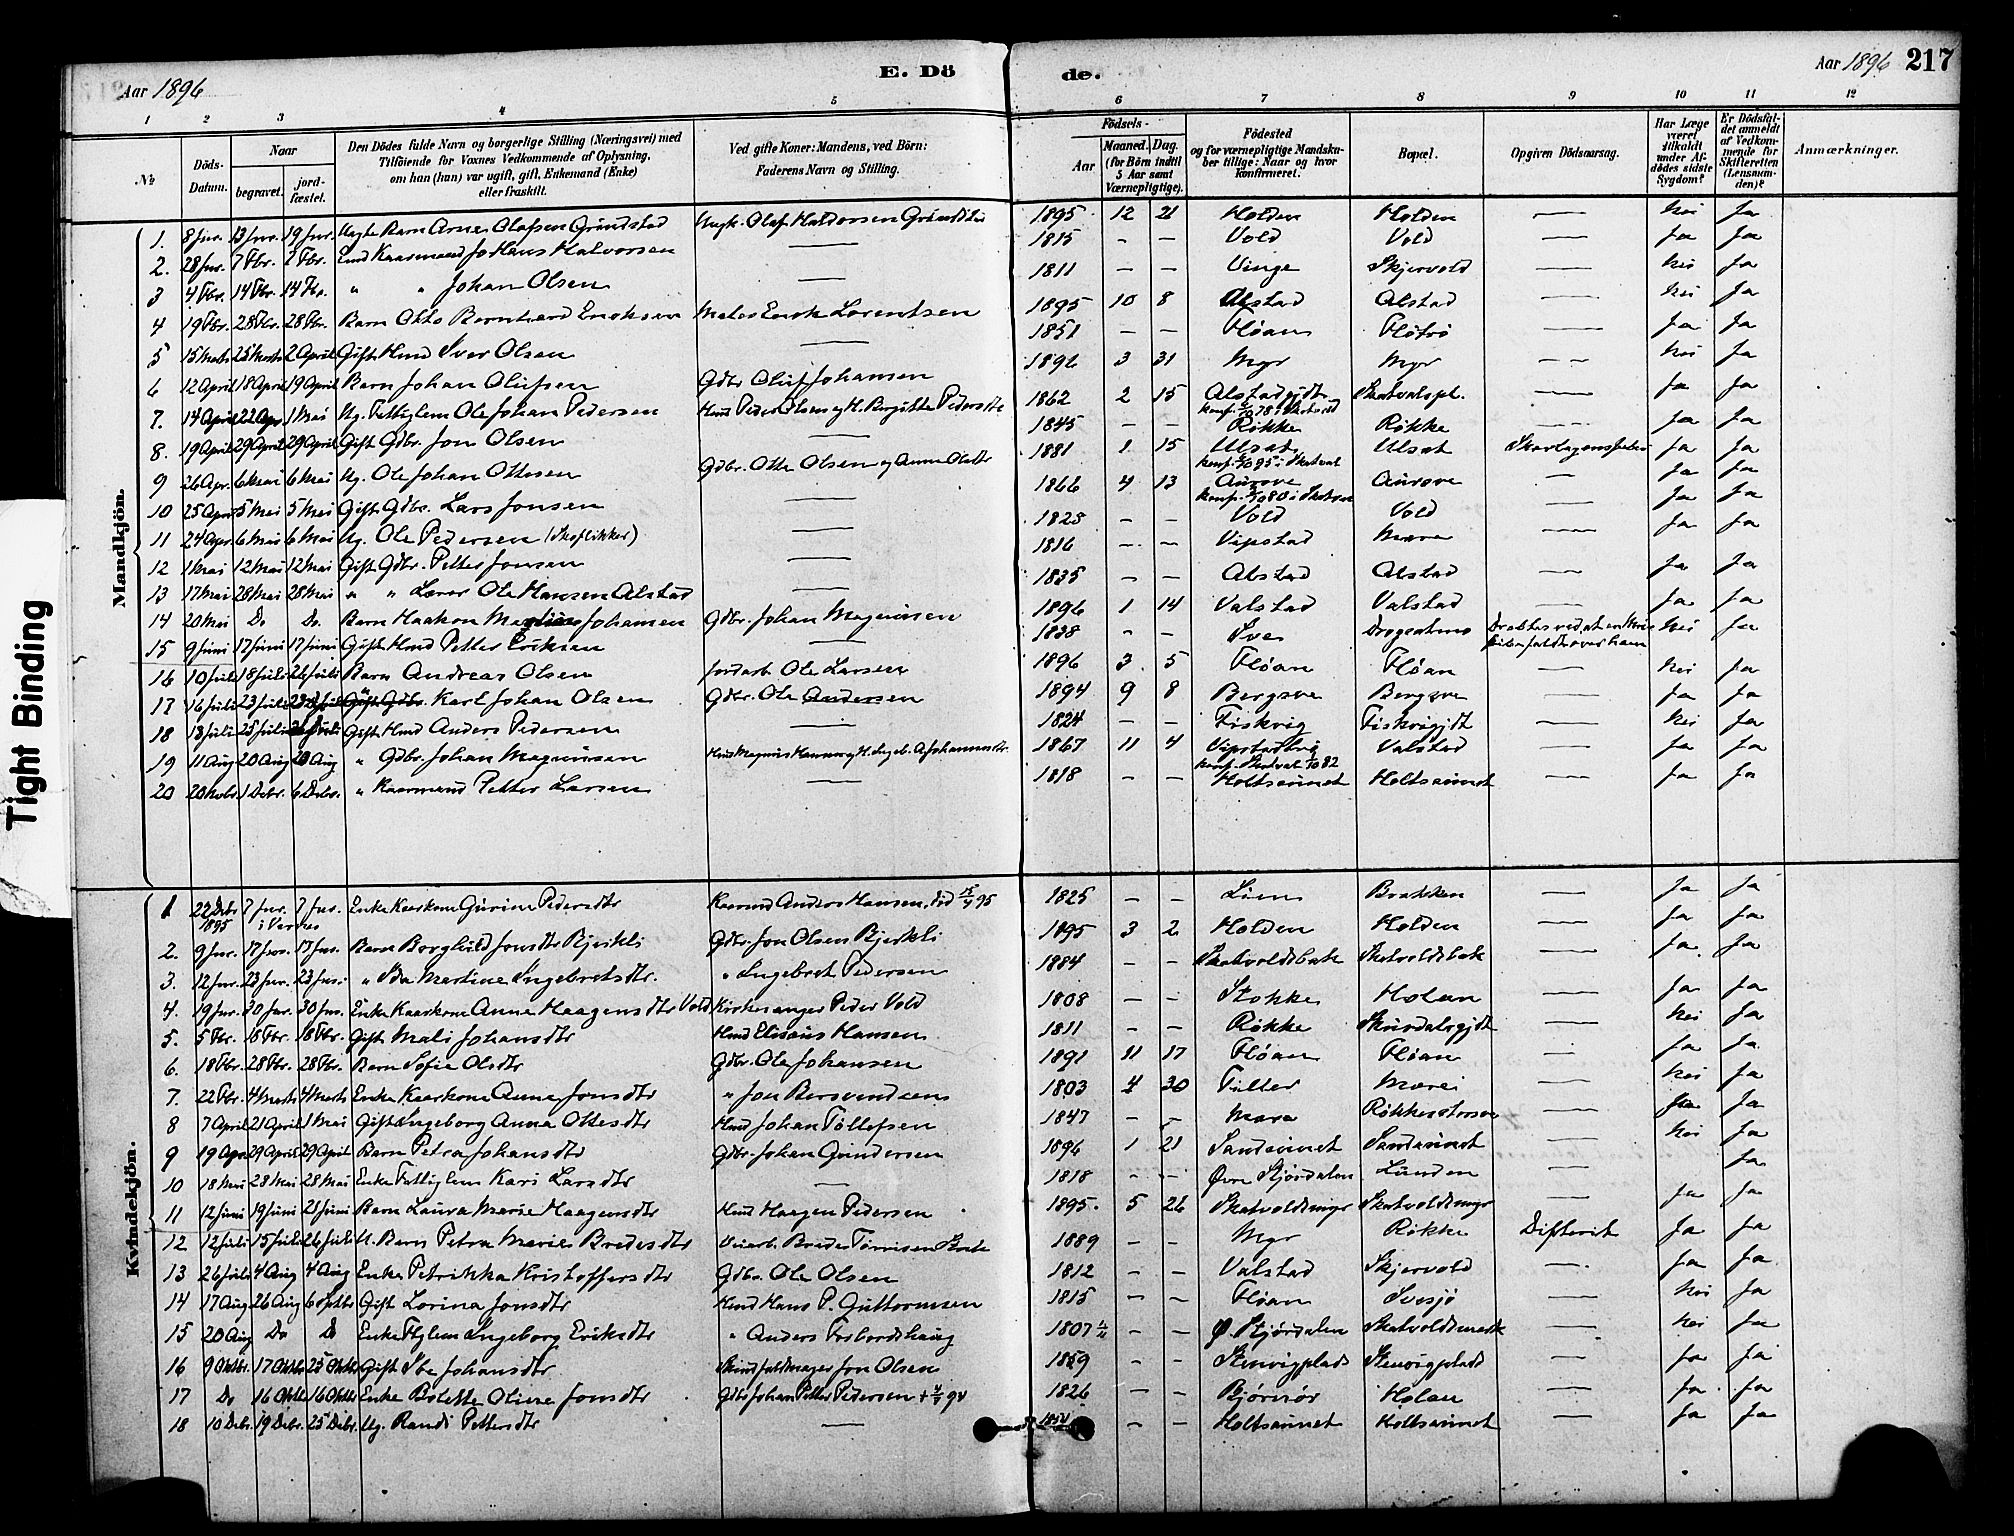 Aar 1896 E. Dö de. Aar 1896 217
1 2 3 4 5 6 7 8 9 10 11 12
No. Döds-Datum. Naar begravet. jordfæstet. Den Dödes fulde Navn og borgerlige Stilling (Næringsvei) med Tilföiende for Voxnes Vedkommende af Oplysning, om han (hun) var ugift, gift, Enkemand (Enke) eller fraskilt. Ved gifte Koner: Mandens, ved Börn: Faderens Navn og Stilling. Födsels- Aar Maaned. Dag. (for Börn indtil 5 Aar samt Værnepligtige). Födested og for værnepligtige Mandskaber tillige: Naar og hvor konfirmeret. Bopæl. Opgiven Dödsaarsag. Har Læge været tilkaldt under Afdödes sidste Sygdom? Er Dödsfaldet anmeldt af Vedkommende for Skifteretten (Lensmanden)? Anmærkninger.
Mandkjön.
1. 8 Jnr. 13 Jnr. 19 Jnr. Uægte Barn Arne Olafsen Grindstad Ungk. Olaf Haldorsen 1895 12 21 Holden Holden — Nei Ja
2. 28 Jnr. 7 Fbr. 2 Fbr. Johans Halvorsen — 1815 - - Vold Vold — Ja Ja
3 4 Fbr. 14 Fbr. 14 Fbr. " " Johan Olsen — 1811 - - Vinge Skjervold — Nei Ja
4 19 Fbr. 28 Fbr. 28 Fbr. Barn Otto Bernhard Eriksen Maler Erik Lorentsen 1895 10 8 Alstad Alstad — Nei Ja
5 15 Marts 25 Marts 2 April Gift Hmd Iver Olsen — 1851 - - Fløan Fløtrø — Ja Ja
6 12 April 18 April 19 April Barn Johan Olufsen Gdbr Oluf Johansen 1896 3 31 Myr Myr — Nei Ja
7. 14 April 22 Apr. 1 Mai Ug. Fattiglem Ole Johan Pedersen Hmd Peder Olsen og H. Birgitte Pedersdtr 1862 2 15 Alstadgjdt Skatvalspl. — Ja Ja
8. 19 April 29 April 29 April Gift Gdbr. Jon Olsen — 1845 - - Røkke Røkke — Ja Ja
9 26 Apr. 6 Mai 6 Mai Ug. Ole Johan Ottesen Gdbr. Otte Olsen og Anne Olsdtr 1881 1 15 Ulsat Ulsat Skarlagensfeber Ja Ja
10 25 Apr. 5 Mai 5 Mai Gift Gdbr. Lars Jonsen — 1866 4 13 Aurove Aurove — Ja Ja
11 24 Apr. 6 Mai 6 Mai Ug. Ole Pedersen (Skoflikker) — 1828 - - Vold Vold — Ja Ja
12 1 Mai 12 Mai 12 Mai Gift Gdbr. Petter Jonsen — 1816 - - Vipstad Mære — Ja Ja
13 17 Mai 28 Mai 28 Mai " " Lærer Ole Hansen Alstad — 1835 - - Alstad Alstad — Ja Ja
14 20 Mai Do Do. Barn Haakon Johansen Gdbr. Johan Magnussen 1896 1 14 Valstad Valstad — Ja Ja
15 9 Juni 17 Juni 17 Juni Gift Hmd Petter Eriksen — 1838 - - Sve Nei Ja
16 10 Juli 18 Juli 26 Juli Barn Andreas Olsen Jordarb. Ole Larsen 1896 3 5 Fløan Fløan — Nei Ja
17 16 Juli 23 Juli 23 Juli Gift Gdbr. Karl Johan Olsen Gdbr. Ole Andersen 1894 9 8 Bergsve Bergsve — Ja Ja
18 18 Juli 25 Juli Juli Gift Hmd Anders Pedersen — 1824 - - Fiskvig Fiskvigjdt — Nei Ja
19 11 Aug 20 Aug 20 Aug " Gdbr. Johan Magnussen 1867 11 4 Valstad — Ja Ja
20 20 Nvbr. 1 Debr. 6 Debr. " Kaarmand Petter Larsen — 1818 - - Holtsaunet Holtsaunet — Ja Ja
Kvindekjön.
1 22 Debr 1895 7 Jnr. i Værnes 7 Jnr. Enke Kaarkone Gurine Pedersdtr Kaarmd Anders Hansen, død 15/4 95 1825 - - Lien Brækken — Ja Ja
2. 9 Jnr. 17 Jnr. 17 Jnr. Barn Borghild Jonsdtr Bjerkli Gdbr. Jon Olsen Bjerkli 1895 3 2 Holden Holden — Ja Ja
3. 12 Jnr. 23 Jnr. 23 Jnr. " Ida Martine Ingebretsdtr. " Ingebret Pedersen 1884 - - Skatvoldsbak Skatvoldsbak — Ja Ja
4. 19 Jnr. 30 Jnr. 30 Jnr. Enke Kaarkone Anne Haagensdtr Vold Kirkesanger Peder Vold 1808 - - Stokke Holan — Ja Ja
5. 5 Fbr. 16 Fbr. 16 Fbr. Gift Mali Johansdtr Hmd Elisæus Hansen 1811 - - Røkke — Nei Ja
6. 18 Fbr. 28 Fbr. 28 Fbr. Barn Sofie Olsdtr Gdbr. Ole Johansen 1891 11 17 Fløan Fløan — Ja Ja
7. 22 Fbr. 4 Marts 4 Marts Enke Kaarkone Anne Jonsdtr " Jon Bersvendsen 1803 4 30 Tiller — Nei Ja
8 7 April 21 April 1 Mai Gift Ingeborg Anna Ottesdtr Hmd Johan Tollefsen 1847 - - Mæra — Ja Ja
9 19 Apr 29 April 29 April Barn Petra Johansdtr Gdbr. Johan Gundersen 1896 1 21 Sandsaunet Sandsaunet — Nei Ja
10 18 Mai 28 Mai 28 Mai Enke Fattiglem Kari Larsdtr — 1818 - - Øvre Stjørdalen Lunden — Ja
11 12 Juni 19 Juni 21 Juni Barn Laura Marie Haagensdtr Hmd Haagen Pedersen 1895. 5 26 Skatvoldsmyr Skatvoldsmyr — Ja Ja
12 12 Juli 15 Juli 26 Juli U. Barn Petra Marie Bredesdtr Veiarb. Brede 1889 - - Myr Røkke Difterit Ja Ja
13 26 Juli 4 Aug 4 Aug Enke Petrikka Kristoffersdtr Gdbr. Ole Olsen 1812 - - Valstad Skjervold — Ja Ja
14 17 Aug 26 Aug 6 Septbr Gift Lorina Jonsdtr Hmd Hans P. Guttormsen 1815 - - Fløan Svesjø — Nei Ja
15 20 Aug Do Do Enke Ingeborg Eriksdtr " Anders Forbordshaug 1807 - - Ø. Stjørdalen — Nei Ja
16 9 Oktbr. 17 Oktbr 25 Oktbr Gift Johansdtr Jon Olsen 1859 - - Stenvigplads Stenvigplads — Ja Ja
17 Do 16 Oktbr 16 Oktbr Enke Bolette Oline Jonsdtr Gdbr Johan Petter Pedersen 1826 - - Bjørnør Holan — Ja Ja
18 10 Debr. 19 Debr. 25 Debr. Ug. Randi Pettersdtr — - - Holtsaunet Holtsaunet — Ja Ja
Tight Binding